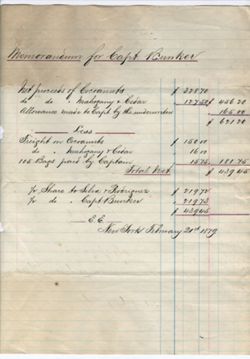 Memorandum for Capt Bunker
Net proceeds of Cocoanuts $ 328 70
do do " Mahogany & Cedar 127 50 $ 456 20
Allowance made to Capt by the underwriters 165 00
$ 621 20
Less
Freight on Cocoanuts $ 150 00
do " Mahogany & Cedar 16 00
105 Bags paid by Captain 15 75 181 75
Total Net $ 439 45
½ Share to Silva & Rodriguez $ 219 72
½ do " Capt Bunker " 219 73
$ 439 45
E.E.
New York February 20th 1879